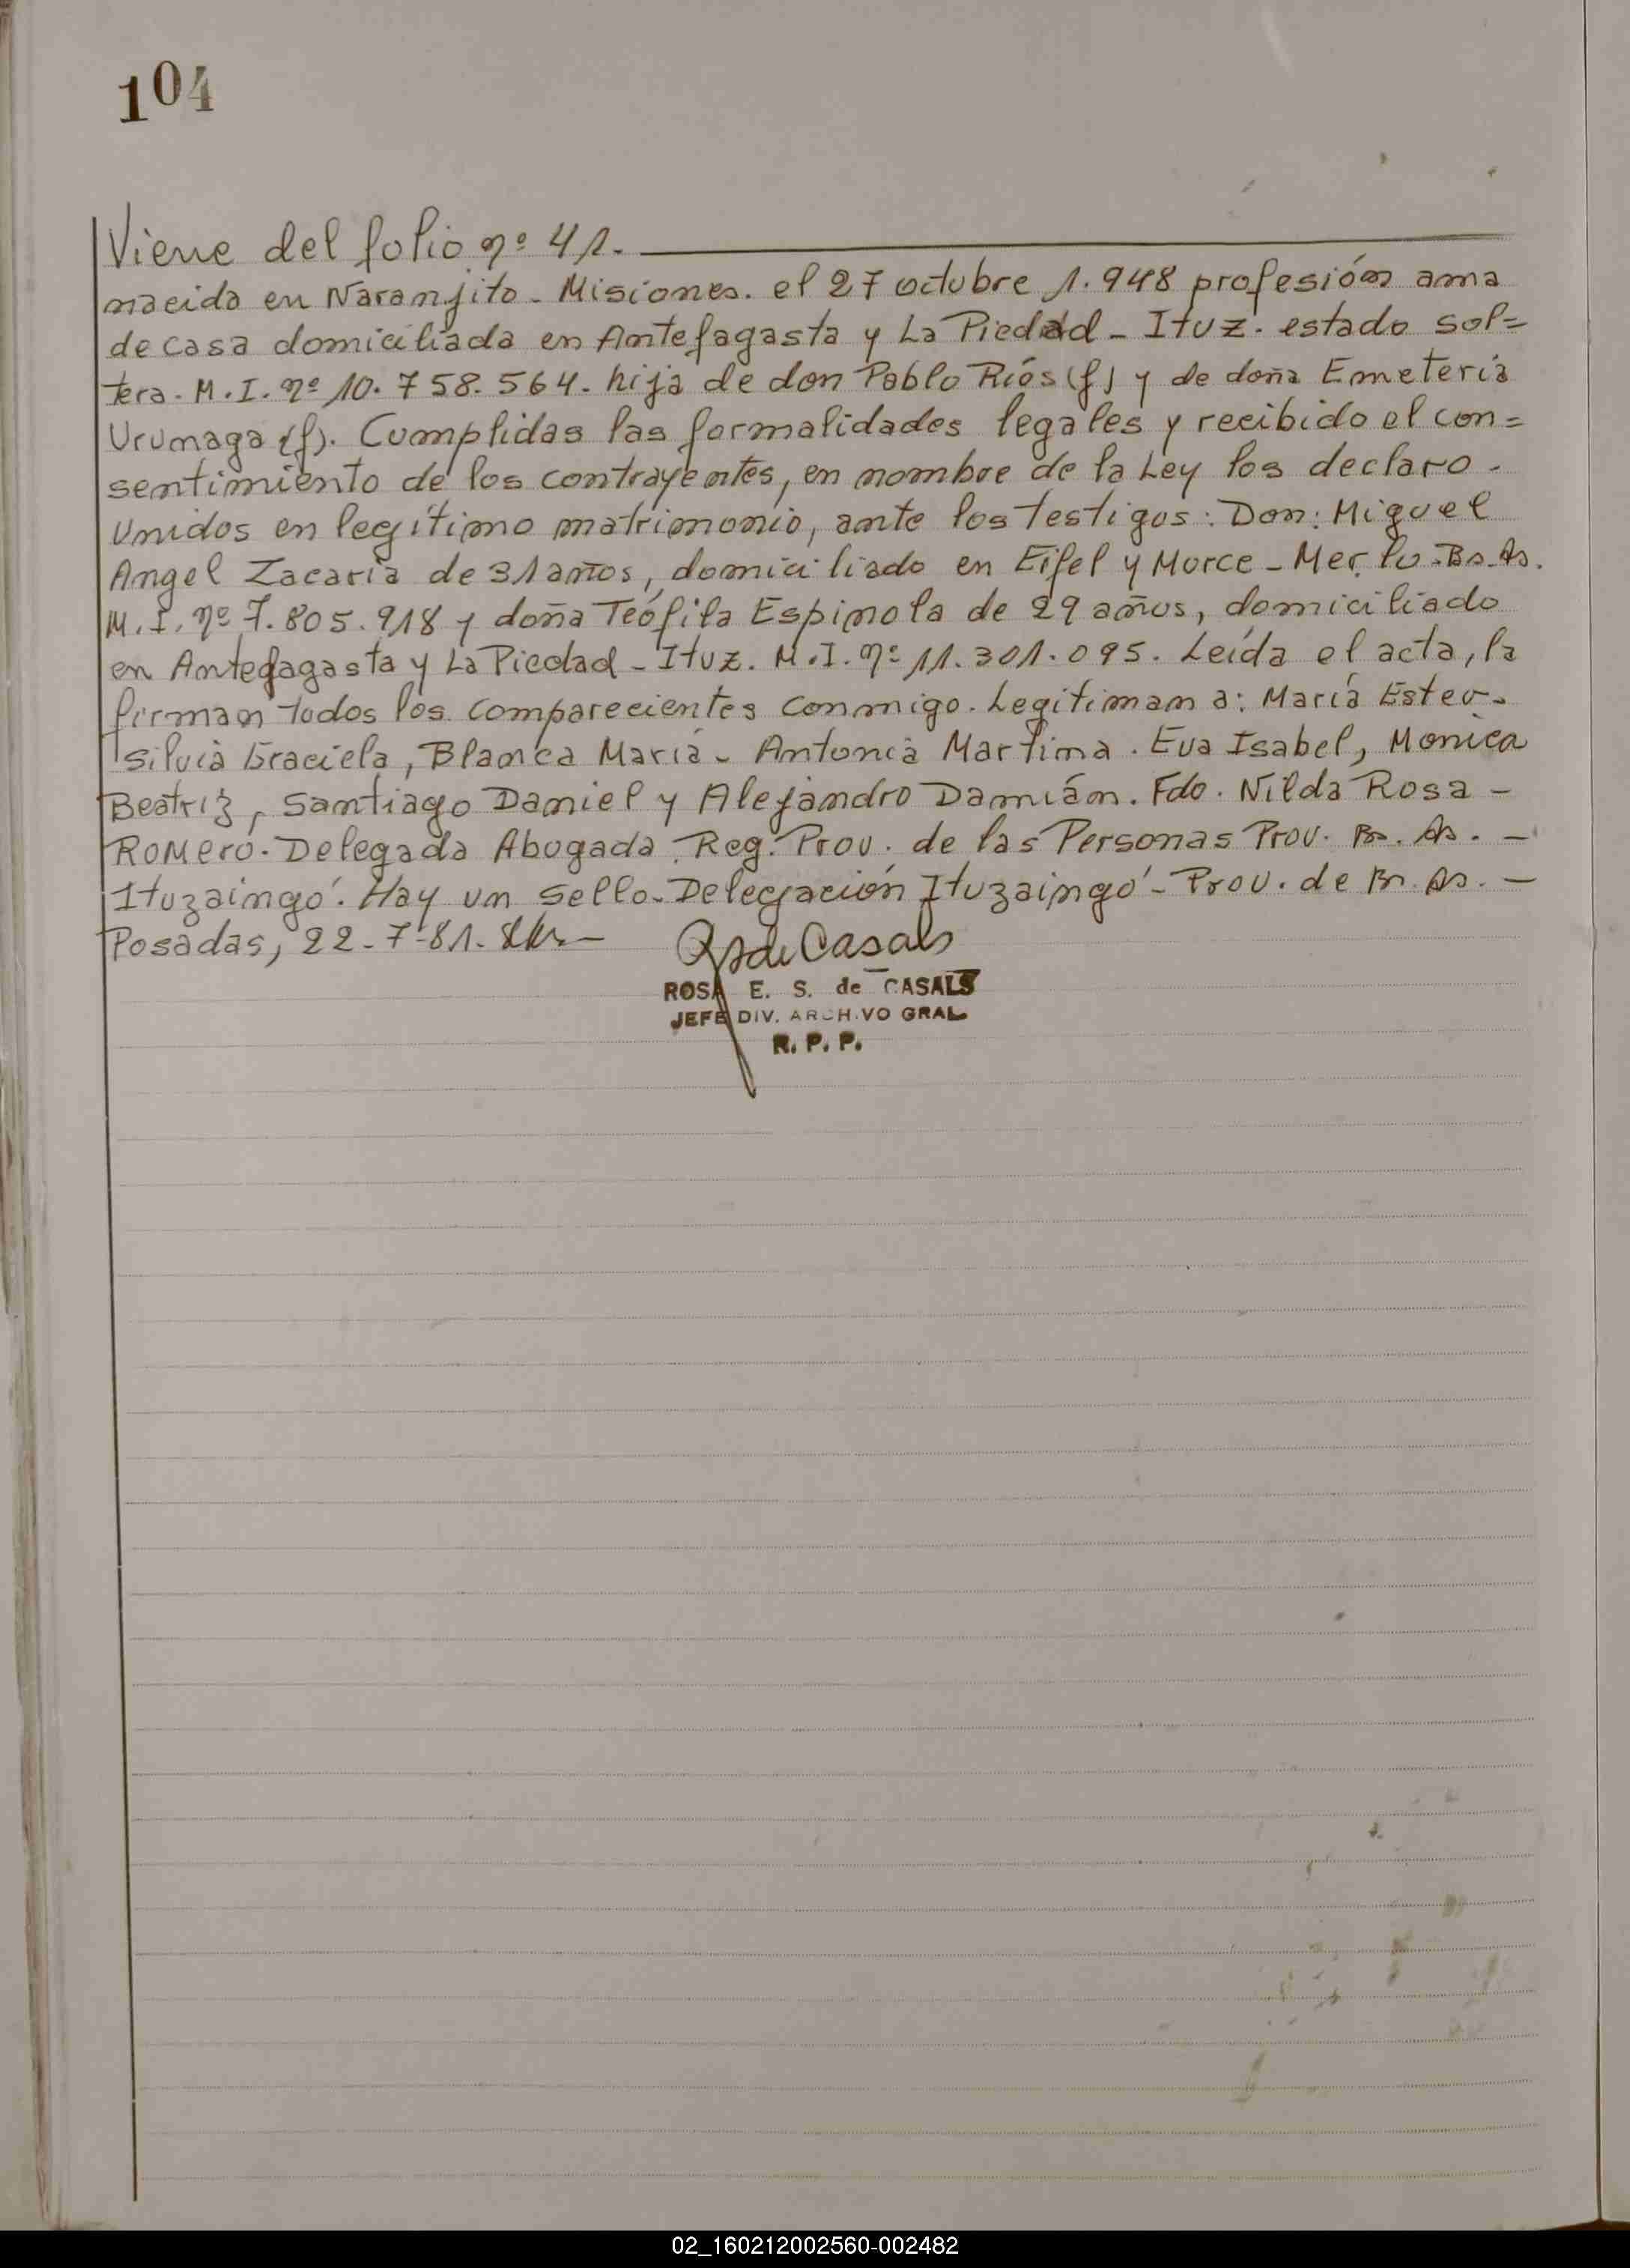 104
Viene del folio nº 41.
nacida en Naranjito - Misiones. el 27 octubre 1.948 profesión ama
de casa domiciliada en Antefagasta y La Piedad - Ituz. estado sol=
tera. M.I. nº 10.758.564. hija de don Pablo Ríos (f) y de doña Emeteria
Urumaga (f). Cumplidas las formalidades legales y recibido el con=
sentimiento de los contrayentes, en nombre de la Ley los declaro -
Unidos en legítimo matrimonio, ante los testigos: Don: Miguel
Angel Zacaría de 31 años, domiciliado en Eifel y Morce - Merlo - Bs. As.
M.I. nº 7.805.918 y doña Teófila Espinola de 29 años, domiciliado
en Antefagasta y La Piedad - Ituz. M.I. nº 11.301.095. Leída el acta, la
firman todos los comparecientes conmigo. Legitiman a: María Ester -
Silvia Graciela, Blanca María - Antonia Martina. Eva Isabel, Monica
Beatriz, Santiago Daniel y Alejandro Damián. Fdo. Nilda Rosa -
Romero. Delegada Abogada Reg. Prov. de las Personas Prov. Bs. As. -
Ituzaingó. Hay un sello - Delegación Ituzaingó - Prov. de Bs. As. -
Posadas, 22-7-81.
R S de Casals
ROSA E. S. de CASALS
JEFE DIV. ARCHIVO GRAL
R. P. P.
02_160212002560-002482